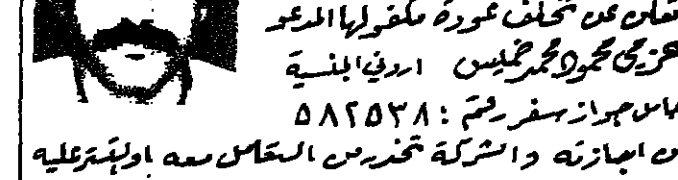 تعلن عن تخلف عودة مكفولها المدعو
عزمي محمود محمد خميس اردني الجنسية
حامل جواز سفر رقم : ٥٨٢٥٣٨
من اجازته والشركة تحذر من التعامل معه او التستر عليه